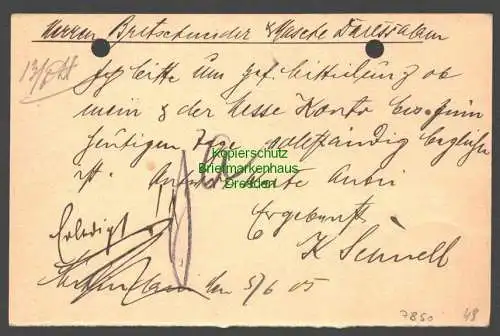 Herren Bretschneider & Hasche Daressalam
Ich bitte um gef. Mitteilung ob
mein & der Messe Konto bis zum
heutigen Tage vollständig beglichen
ist. Antwortkarte anbei
Kopierschutz
Briefmarkenhaus
Dresden
Ergebenst
Erledigt
K Schnell
den 5/6 05
7850 48